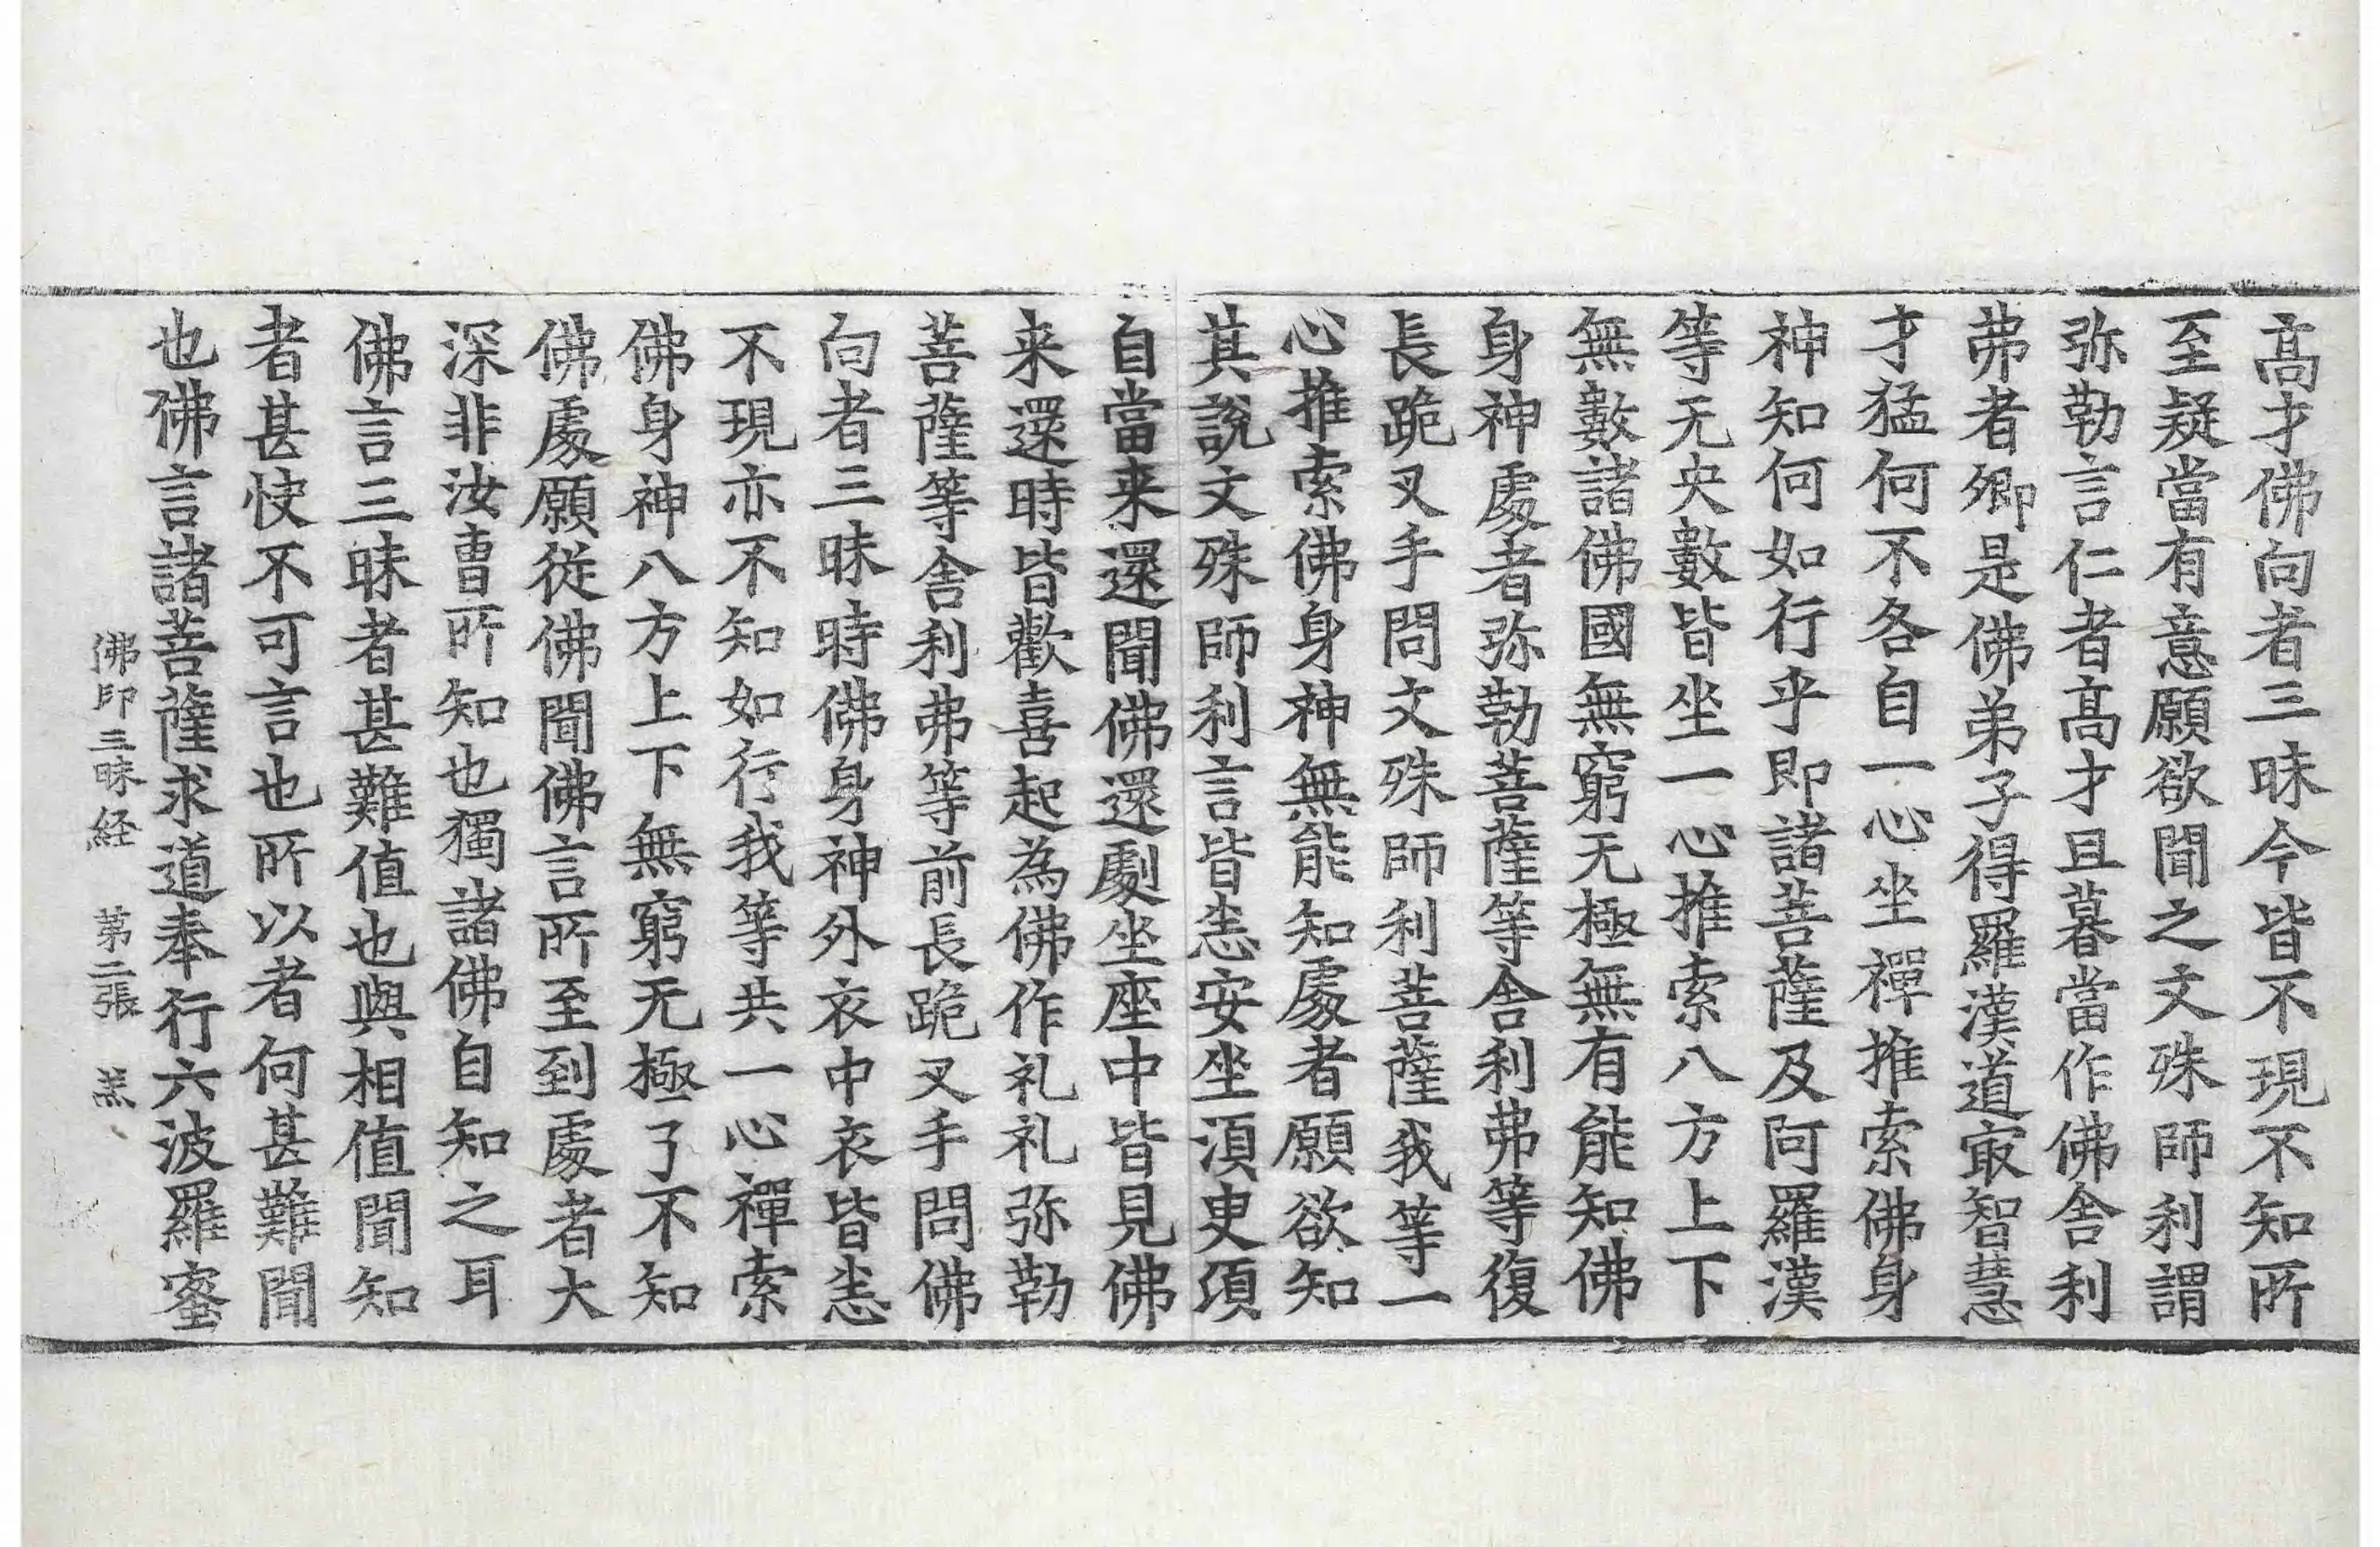 髙才佛向者三昧今皆不現不知所
至疑當有意願欲聞之文殊師利謂
弥勒言仁者髙才且暮當作佛舎利
弗者卿是佛弟子得羅漢道㝡智慧
才猛何不各自一心坐禪推索佛身
神知何如行乎即諸菩薩及阿羅漢
等无央數皆坐一心推索八方上下
無數諸佛國無窮无極無有能知佛
身神處者弥勒菩薩等舎利弗等復
長跪叉手問文殊師利菩薩我等一
心推索佛身神無能知處者願欲知
其說文殊師利言皆恚安坐湏臾湏
自當来還聞佛還劇坐座中皆見佛
来還時皆歡喜起為佛作礼礼弥勒
菩薩等舎利弗等前長跪叉手問佛
向者三昧時佛身神外衣中衣皆恚
不現亦不知如行我等共一心禪索
佛身神八方上下無窮无極了不知
佛處願從佛聞佛言所至到處者大
深非汝曹所知也獨諸佛自知之耳
佛言三昧者甚難值也與相值聞知
者甚快不可言也所以者何甚難聞
也佛言諸菩薩求道奉行六波羅蜜
佛印三昧経　第二張　羔